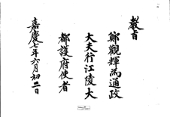 教旨
鄭觀輝爲通政
大夫行江陵大
都護府使者
嘉慶七年六月初二日